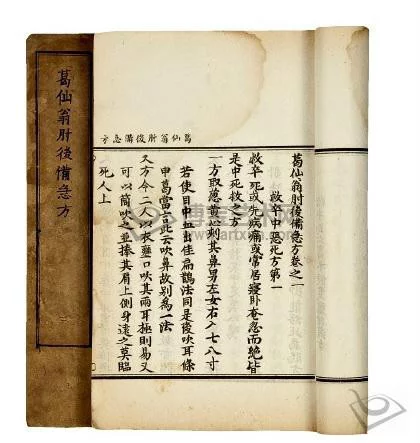 葛仙翁肘後備急方
葛仙翁肘後備急方
葛仙翁肘後備急方卷之一
救卒中惡死方第一
救卒死或先病痛或常居寢卧奄忽而絕皆
是中死救之方
一方取葱黃心刺其鼻男左女右入七八寸
若使目中血出佳扁鵲法同是後吹耳條
申葛當言此云吹鼻故別為一法
又方令二人以衣壅口吹其兩耳極則易又
可以筒吹之並捧其肩上側身遠之莫臨
死人上